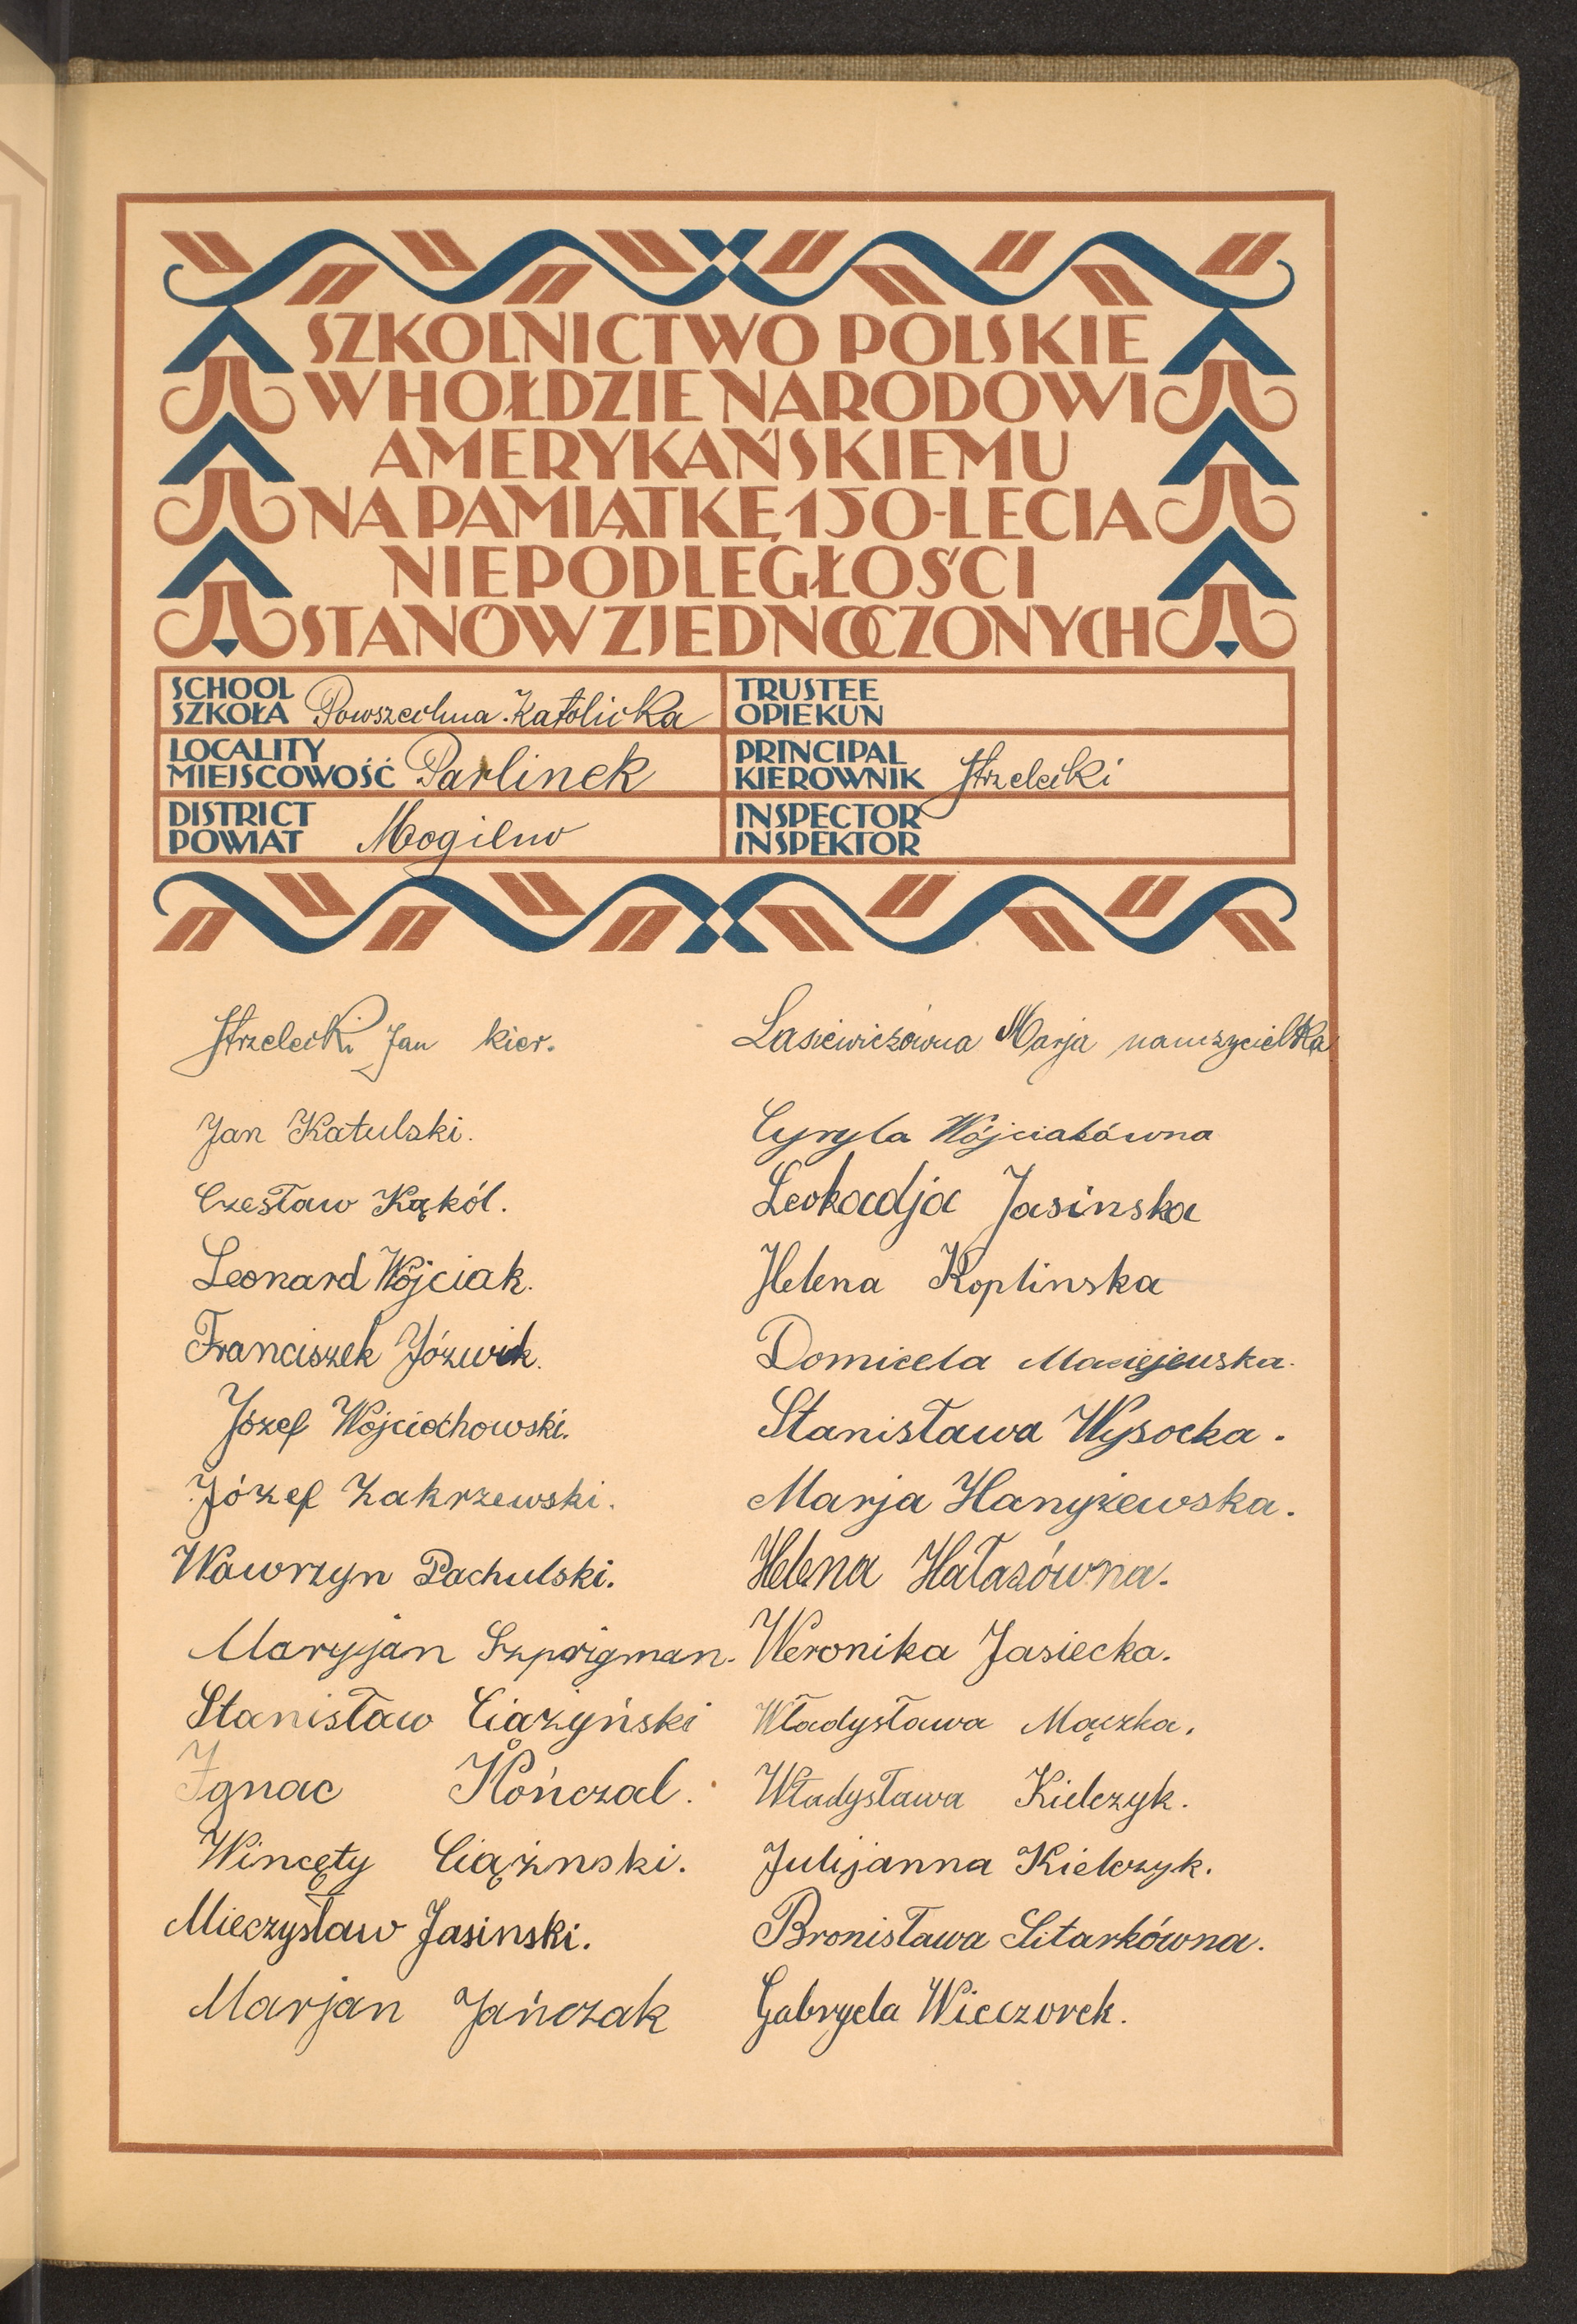 SZKOLNICTWO POLSKIE
W HOŁDZIE NARODOWI
AMERYKAŃSKIEMU
NA PAMIĄTKĘ 150-LECIA
NIEPODLEGŁOŚCI
STANÓW ZJEDNOCZONYCH
SCHOOL
SZKOŁA Powszechna Katolicka
LOCALITY
MIEJSCOWOŚĆ Parlinek
DISTRICT
POWIAT Mogilno
TRUSTEE
OPIEKUN
PRINCIPAL
KIEROWNIK Strzelecki
INSPECTOR
INSPEKTOR
Strzelecki Jan kier.
Jan Katulski.
Czesław Kąkól.
Leonard Wójciak.
Franciszek Józwik.
Józef Wojciechowski.
Józef Zakrzewski.
Wawrzyn Pachulski.
Maryjan Szprigman.
Stanisław Ciażyński
Ignac Kończal.
Wincęty Ciążnski.
Mieczysław Jasinski.
Marjan Jańczak
Lasiewiczówna Marja nauczycielka
Cyryla Wójciakówna
Leokadja Jasinska
Helena Koplinska
Domicela Maciejewska.
Stanisława Wysocka.
Marja Hanyżewska.
Helena Hałasówna.
Weronika Jasiecka.
Władysława Mączka.
Władysława Kielczyk.
Julijanna Kielczyk.
Bronisława Sitarkówna.
Gabryela Wieczorek.